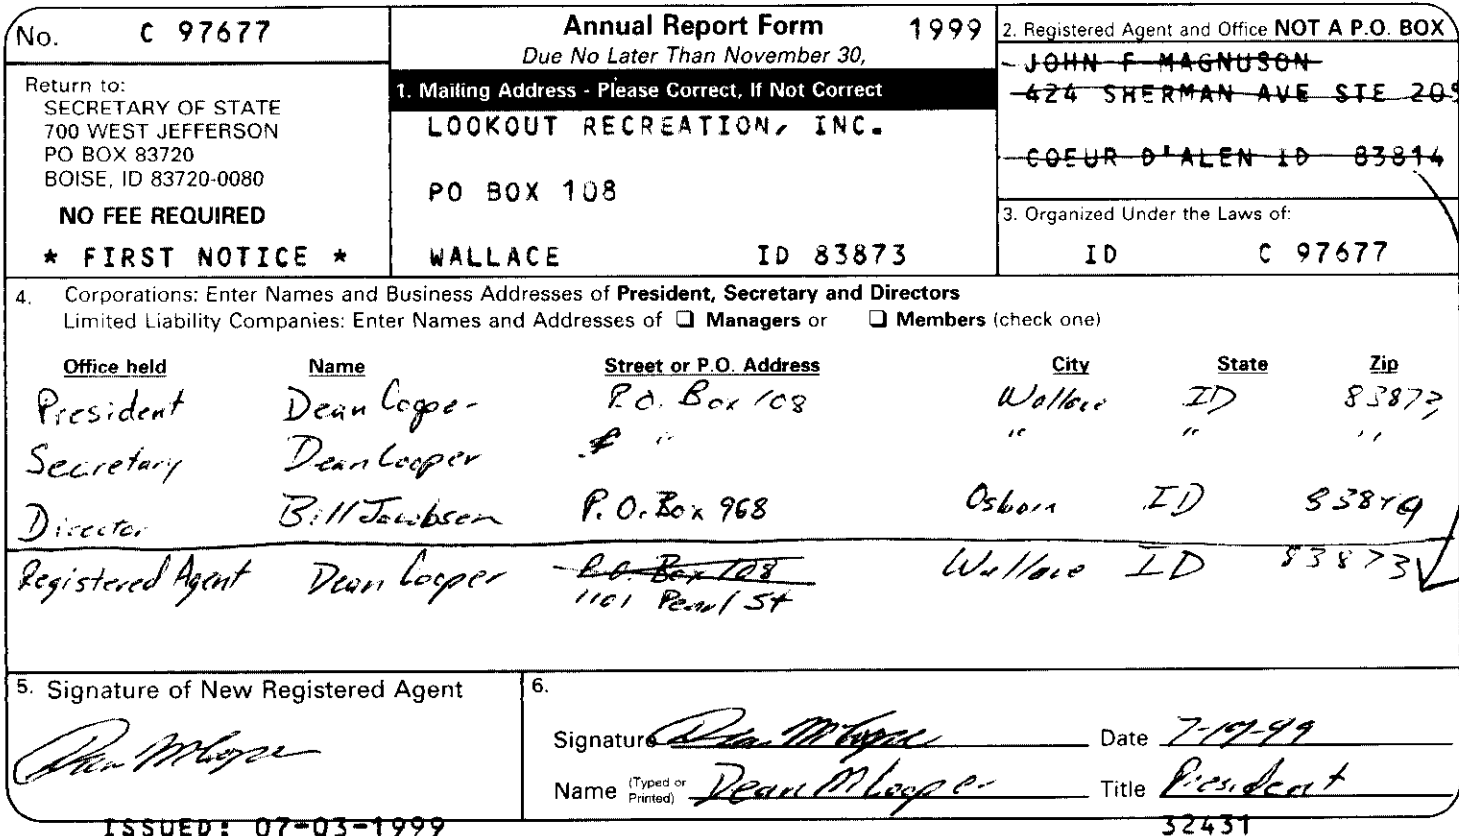 No. C 97677
Return to:
SECRETARY OF STATE
700 WEST JEFFERSON
PO BOX 83720
BOISE, ID 83720-0080
NO FEE REQUIRED
* FIRST NOTICE *
Annual Report Form 1999
Due No Later Than November 30,
1. Mailing Address - Please Correct, If Not Correct
LOOKOUT RECREATION, INC.
PO BOX 108
WALLACE ID 83873
2. Registered Agent and Office NOT A P.O. BOX
JOHN F MAGNUSON
424 SHERMAN AVE STE 205
COEUR D'ALEN ID 83814
3. Organized Under the Laws of:
ID C 97677
4. Corporations: Enter Names and Business Addresses of President, Secretary and Directors
Limited Liability Companies: Enter Names and Addresses of ❏ Managers or ❏ Members (check one)
Office held Name Street or P.O. Address City State Zip
President Dean Cooper P.O. Box 108 Wallace ID 83873
Secretary Dean Cooper " " " "
Director Bill Jacobsen P.O. Box 968 Osborn ID
Registered Agent Dean Cooper P.O. Box 108 Wallace ID 83873
1101 Pearl St
5. Signature of New Registered Agent
Dean M Cooper
6.
Signature Dean M Cooper Date
Name (Typed or Printed) Dean M Cooper Title President
ISSUED: 07-03-1999 32431